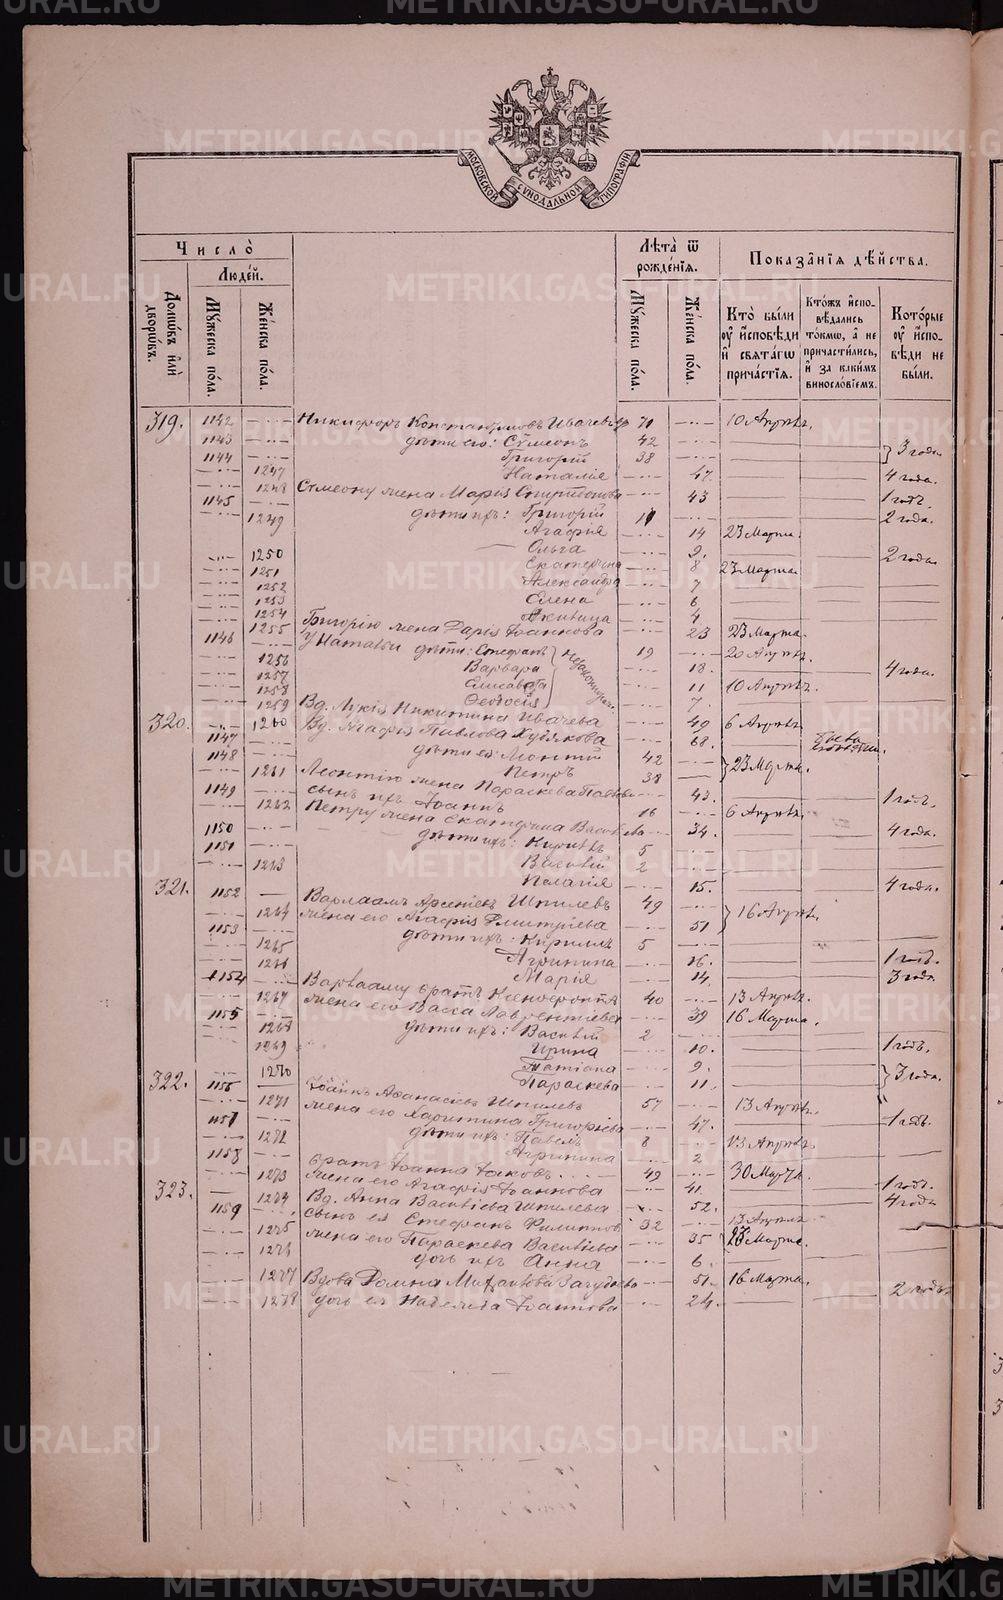 МОСКОВСКОЙ СѴНОДАЛЬНОЙ ТИПОГРАФІИ
Число̀
Людей.
Домѡвъ и҆лѝ дворѡвъ.
Мꙋжеска по́ла.
Же́нска по́ла.
Лѣта̀ ѿ рожде́нїѧ.
Мꙋжеска по́ла.
Же́нска по́ла.
Показа́нїѧ дѣ́йства.
Кто̀ бы́ли оу҆ и҆сповѣди и҆ свѧта́гѡ прича́стїѧ.
Кто́жъ и҆спо-вѣдались то́кмѡ, а҆ не причасти́лись, и҆ за каки́мъ винослові́емъ.
Кото́рые оу҆ и҆спо-вѣди не бы́ли.
319. 1142 Никифоръ Константиновъ Ивачевъ 71 10 Апрѣль.
1143 дѣти его: Сѵмеонъ 42 3 года
1144 Григорій 38
1247 Наталія 47. 4 года.
1248 Сѵмеону жена Марія Спиридонова 43 1 годъ.
1145 дѣти ихъ: Григорій 11 2 года.
1249 Агафья 14 23 Марта.
Ольга 9. 2 года.
1250 Екатерина 8 23 Марта.
1251 Александра 7
1252 Елена 6
1253 4
1254 Григорію жена Дарія Іоаннова 23 23 Марта.
1255
1146 У Наталіи дѣти: Стефанъ 19 20 Апрѣль.
1256 Варвара 18. 4 года.
1257 Елисавета 11 10 Апрѣль.
1258 Ѳеодосія 7.
1259 Вд. Лукія Никитина Ивачева 49 6 Апрѣль
320. 1260 Вд. Агафія Павлова Худякова 68.
1147 дѣти ея: 42 23 Марта.
1148 Петръ 38
1261 Леонтію жена Параскева 43. 1 годъ.
1149 сынъ ихъ Іоаннъ 16 6 Апрѣль.
1262 Петру жена Екатерина 34. 4 года.
1150 дѣти ихъ: 5
1151 Василій 2
1263 Пелагія 15. 4 года.
321. 1152 Варлаамъ Арсеніевъ Шпилевъ 49 16 Апрѣль.
1264 жена его Агафія Дмитріева 51
1153 дѣти ихъ: Кириллъ 5
1265 Агрипина 16. 1 годъ.
1266 Марія 14. 3 года
1154 Варлааму братъ Ксенофонтъ 40 13 Апрѣль.
1267 жена его Васса Лаврентіева 39 16 Марта.
1155 дѣти ихъ: Василій 2
1268 Ирина 10. 1 годъ.
1269 Татіана 9. 3 года.
1270 Параскева 11.
322. 1156 Іоаннъ Аѳанасіевъ Шпилевъ 57 13 Апрѣль.
1271 жена его Харитина Григоріева 47. 1 годъ.
1157 дѣти ихъ: Павелъ 8 13 Апрѣль
1272 Агрипина 2
1158 братъ Іоанна Іаковъ 49 30 Марта.
1273 жена его Агафія Іоаннова 41. 1 годъ.
323. 1274 Вд. Анна Василіева Шпилева 52. 4 года
1159 сынъ ея Стефанъ Филиппов 32 13 Апрѣль
1275 жена его Параскева Василіева 35 23 Марта.
1276 дочь ихъ Анна 6.
1277 Вдова Домна Михаилова 51. 16 Марта.
1278 дочь ея Надежда Іоаннова 24. 2 года